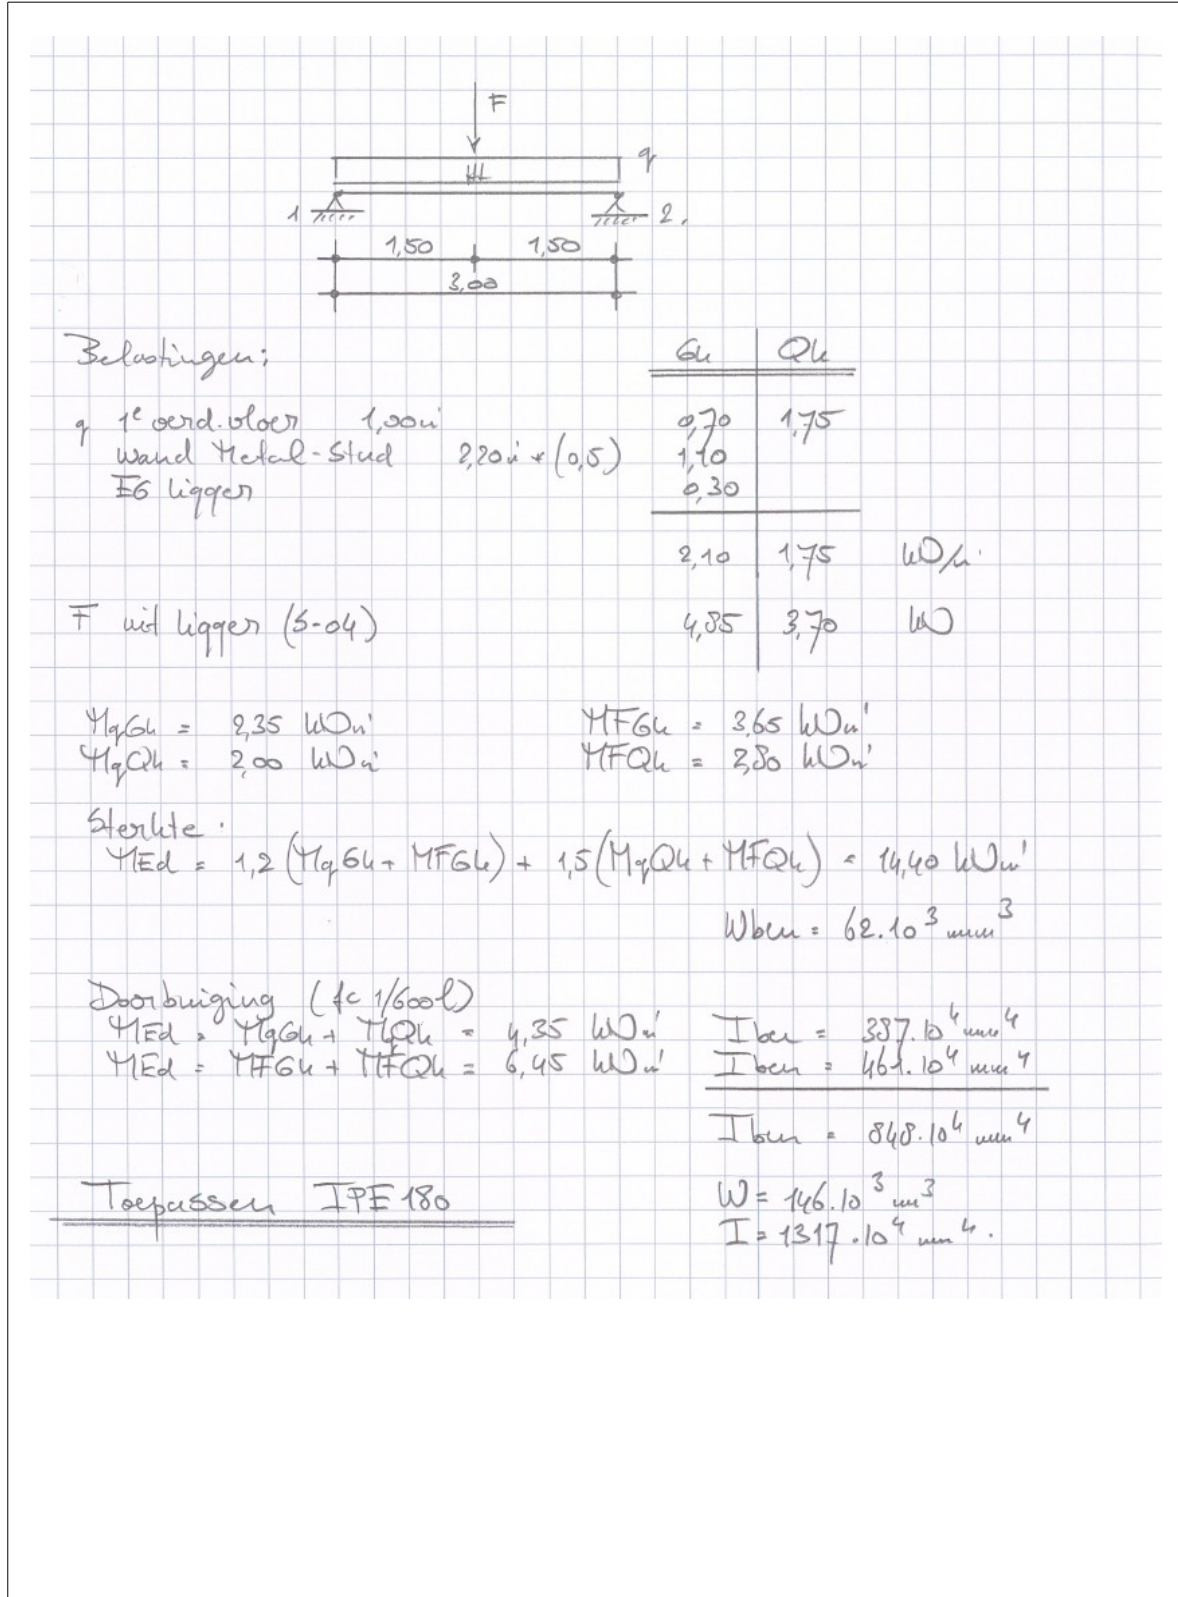 F
q
1
2.
1,50 1,50
3,00
Belastingen; Gk Qk
q 1e verd. vloer 1,00m' 0,70 1,75
wand Metal-Stud 2,20m' * (0,5) 1,10
EG ligger 0,30
2,10 1,75 kN/m'
F uit ligger (S-04) 4,85 3,70 kN
MqGk = 2,35 kNm' MFGk = 3,65 kNm'
MqQk = 2,00 kNm' MFQk = 2,80 kNm'
Sterkte.
MEd = 1,2 (MqGk + MFGk) + 1,5 (MqQk + MFQk) = 14,40 kNm'
Wben = 62.10³ mm³
Doorbuiging (fc 1/600l)
MEd = MqGk + MQk = 4,35 kNm' Iben = 387.10⁴ mm⁴
MEd = MFGk + MFQk = 6,45 kNm' Iben = 461.10⁴ mm⁴
Iben = 848.10⁴ mm⁴
Toepassen IPE 180 W = 146.10³ mm³
I = 1317.10⁴ mm⁴.